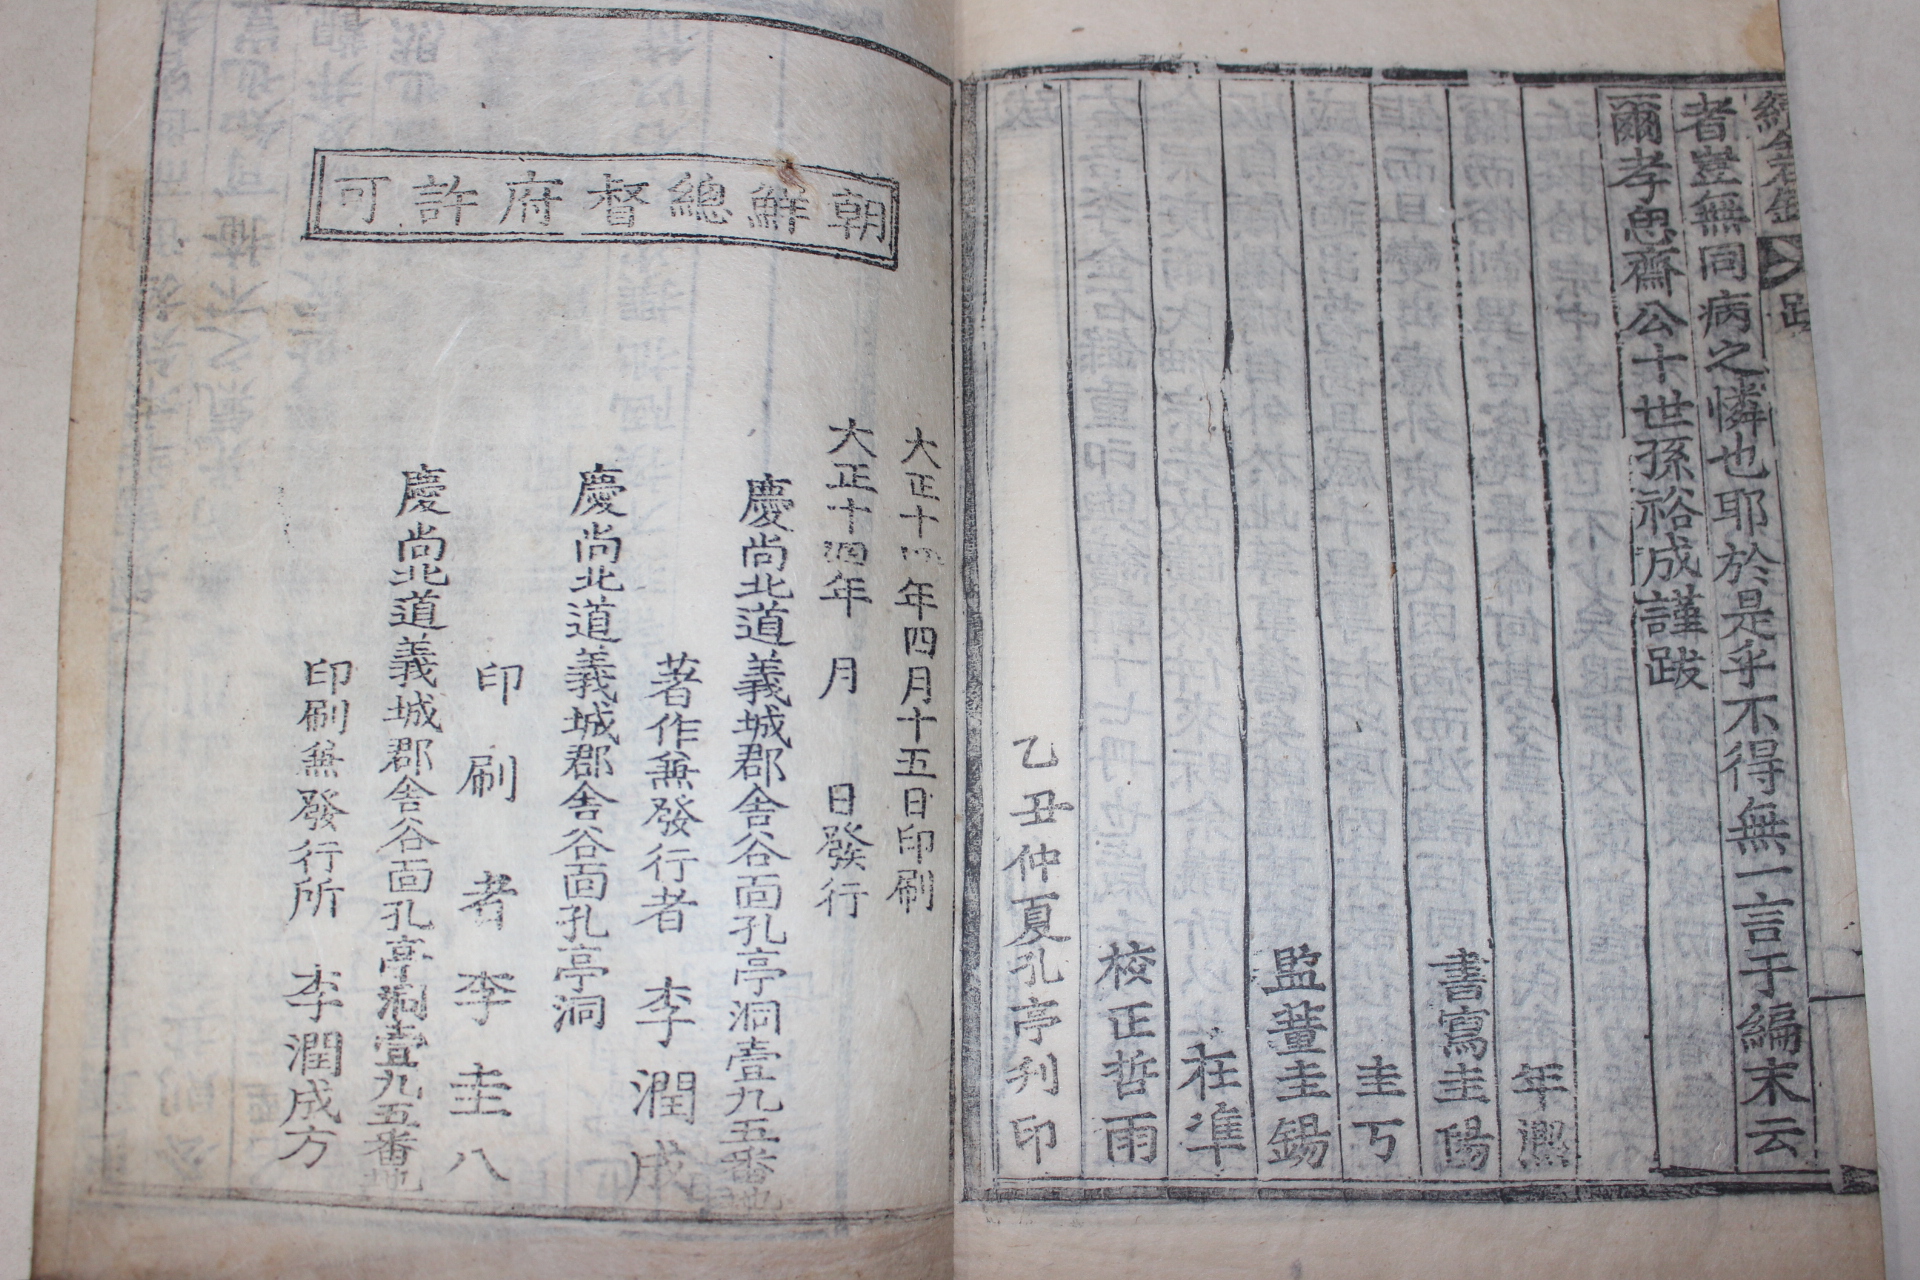 者豈無同病之憐也耶於是乎不得無一言于編末云
爾孝思齋公十世孫裕成謹跋
年凞
書寫圭陽
圭丂
監董圭錫
在準
校正哲雨
乙丑仲夏孔亭刊印
朝鮮總督府許可
大正十四年四月十五日印刷
大正十四年 月 日發行
慶尚北道義城郡舍谷面孔亭洞壹九五番地
著作兼發行者 李潤成
慶尚北道義城郡舍谷面孔亭洞
印刷者 李圭八
慶尚北道義城郡舍谷面孔亭洞壹九五番地
印刷兼發行所 李潤成方